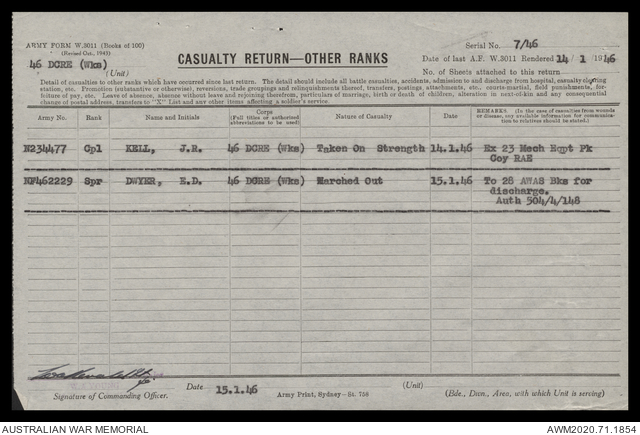 ARMY FORM W.3011 (Books of 100)
(Revised Oct., 1943)
Serial No. 7/46
46 DCRE (Wks)
(Unit)
CASUALTY RETURN—OTHER RANKS
Date of last A.F. W.3011 Rendered 14/1/1946
No. of Sheets attached to this return
Detail of casualties to other ranks which have occurred since last return. The detail should include all battle casualties, accidents, admission to and discharge from hospital, casualty clearing
station, etc. Promotion (substantive or otherwise), reversions, trade groupings and relinquishments thereof, transfers, postings, attachments, etc. courts-martial, field punishments, for-
feiture of pay, etc. Leave of absence, absence without leave and rejoining therefrom, particulars of marriage, birth or death of children, alteration in next-of-kin and any consequential
change of postal address, transfers to "X" List and any other items affecting a soldier's service.
Army No. Rank Name and Initials Corps (Full titles or authorised abbreviations to be used) Nature of Casualty Date REMARKS. (In the case of casualties from wounds or disease, any available information for communication to relatives should be stated.)
N234477 Cpl KELL, J.R. 46 DCRE (Wks) Taken On Strength 14.1.46 Ex 23 Mech Eqpt Pk
Coy RAE
NF462229 Spr DWYER, E.D. 46 DCRE (Wks) Marched Out 15.1.46 To 28 AWAS Bks for
discharge.
Auth 504/4/148
Signature of Commanding Officer.
Date 15.1.46
Army Print, Sydney—St. 758
(Unit)
(Bde., Divn., Area, with which Unit is serving)
AUSTRALIAN WAR MEMORIAL
AWM2020.71.1854